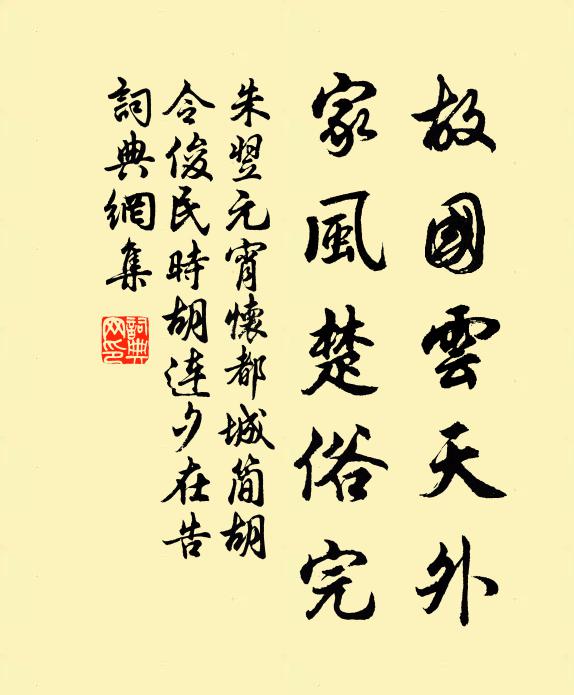 故國雲天外
家風楚俗完
朱翌元宵懷都城简胡
令俊民時胡连夕在告
詞典網集
詞典網印